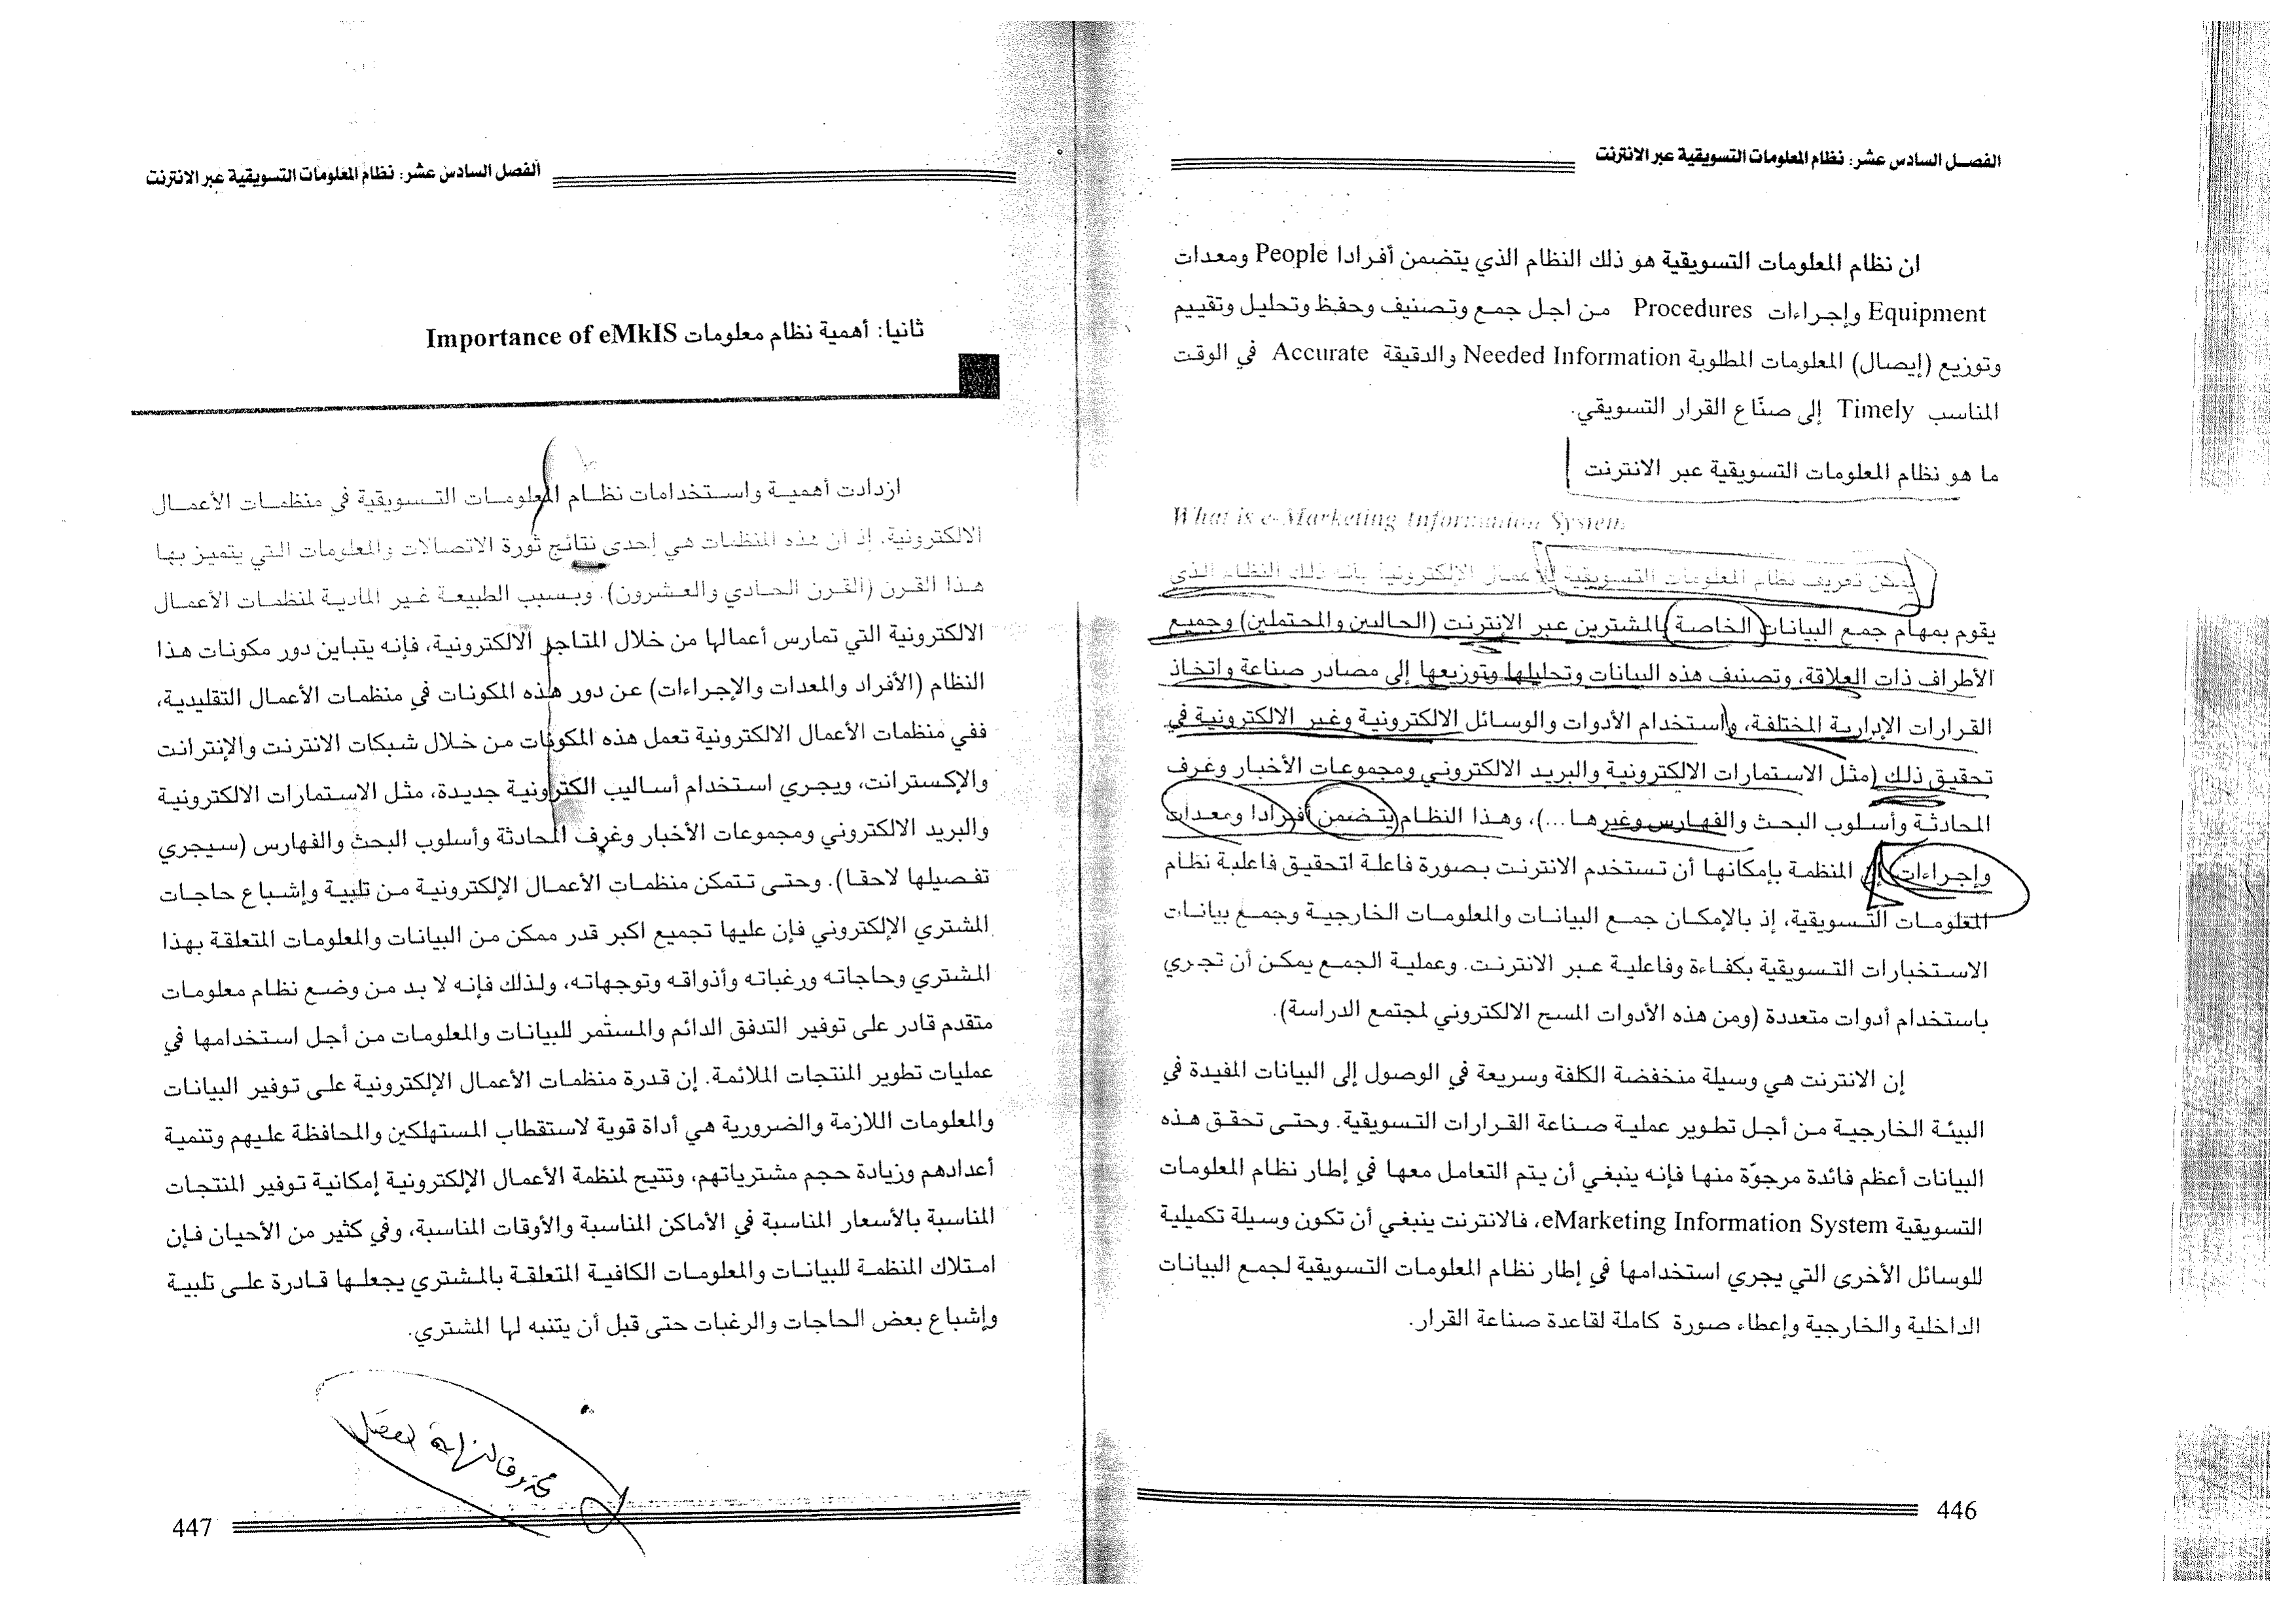 الفصل السادس عشر: نظام المعلومات التسويقية عبر الانترنت
ان نظام المعلومات التسويقية هو ذلك النظام الذي يتضمن أفرادا People ومعدات
Equipment وإجراءات Procedures من اجل جمع وتصنيف وحفظ وتحليل وتقييم
وتوزيع (إيصال) المعلومات المطلوبة Needed Information والدقيقة Accurate في الوقت
المناسب Timely إلى صنّاع القرار التسويقي.
ما هو نظام المعلومات التسويقية عبر الانترنت
What is e-Marketing Information System
يمكن تعريف نظام المعلومات التسويقية للأعمال الإلكترونية بأنه ذلك النظام الذي
يقوم بمهام جمع البيانات الخاصة بالمشترين عبر الإنترنت (الحاليين والمحتملين) وجميع
الأطراف ذات العلاقة، وتصنيف هذه البيانات وتحليلها وتوزيعها إلى مصادر صناعة واتخاذ
القرارات الإدارية المختلفة، واستخدام الأدوات والوسائل الالكترونية وغير الالكترونية في
تحقيق ذلك (مثل الاستمارات الالكترونية والبريد الالكتروني ومجموعات الأخبار وغرف
المحادثة وأسلوب البحث والفهارس وغيرها...)، وهذا النظام يتضمن أفرادا ومعدات
وإجراءات إن المنظمة بإمكانها أن تستخدم الانترنت بصورة فاعلة لتحقيق فاعلية نظام
المعلومات التسويقية، إذ بالإمكان جمع البيانات والمعلومات الخارجية وجمع بيانات
الاستخبارات التسويقية بكفاءة وفاعلية عبر الانترنت. وعملية الجمع يمكن أن تجري
باستخدام أدوات متعددة (ومن هذه الأدوات المسح الالكتروني لمجتمع الدراسة).
إن الانترنت هي وسيلة منخفضة الكلفة وسريعة في الوصول إلى البيانات المفيدة في
البيئة الخارجية من أجل تطوير عملية صناعة القرارات التسويقية. وحتى تحقق هذه
البيانات أعظم فائدة مرجوّة منها فإنه ينبغي أن يتم التعامل معها في إطار نظام المعلومات
التسويقية eMarketing Information System، فالانترنت ينبغي أن تكون وسيلة تكميلية
للوسائل الأخرى التي يجري استخدامها في إطار نظام المعلومات التسويقية لجمع البيانات
الداخلية والخارجية وإعطاء صورة كاملة لقاعدة صناعة القرار.
446
الفصل السادس عشر: نظام المعلومات التسويقية عبر الانترنت
ثانيا: أهمية نظام معلومات Importance of eMkIS
ازدادت أهمية واستخدامات نظام المعلومات التسويقية في منظمات الأعمال
الالكترونية. إذ ان هذه المنظمات هي إحدى نتائج ثورة الاتصالات والمعلومات التي يتميز بها
هذا القرن (القرن الحادي والعشرون). وبسبب الطبيعة غير المادية لمنظمات الأعمال
الالكترونية التي تمارس أعمالها من خلال المتاجر الالكترونية، فإنه يتباين دور مكونات هذا
النظام (الأفراد والمعدات والإجراءات) عن دور هذه المكونات في منظمات الأعمال التقليدية،
ففي منظمات الأعمال الالكترونية تعمل هذه المكونات من خلال شبكات الانترنت والإنترانت
والإكسترانت، ويجري استخدام أساليب الكترونية جديدة، مثل الاستمارات الالكترونية
والبريد الالكتروني ومجموعات الأخبار وغرف المحادثة وأسلوب البحث والفهارس (سيجري
تفصيلها لاحقا). وحتى تتمكن منظمات الأعمال الإلكترونية من تلبية وإشباع حاجات
المشتري الإلكتروني فإن عليها تجميع اكبر قدر ممكن من البيانات والمعلومات المتعلقة بهذا
المشتري وحاجاته ورغباته وأذواقه وتوجهاته، ولذلك فإنه لا بد من وضع نظام معلومات
متقدم قادر على توفير التدفق الدائم والمستمر للبيانات والمعلومات من أجل استخدامها في
عمليات تطوير المنتجات الملائمة. إن قدرة منظمات الأعمال الإلكترونية على توفير البيانات
والمعلومات اللازمة والضرورية هي أداة قوية لاستقطاب المستهلكين والمحافظة عليهم وتنمية
أعدادهم وزيادة حجم مشترياتهم، وتتيح لمنظمة الأعمال الإلكترونية إمكانية توفير المنتجات
المناسبة بالأسعار المناسبة في الأماكن المناسبة والأوقات المناسبة، وفي كثير من الأحيان فإن
امتلاك المنظمة للبيانات والمعلومات الكافية المتعلقة بالمشتري يجعلها قادرة على تلبية
وإشباع بعض الحاجات والرغبات حتى قبل أن يتنبه لها المشتري.
447